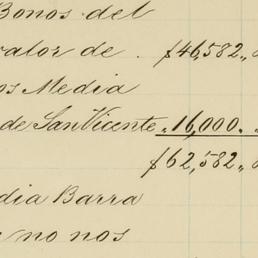 Bonos del
valor de . $46,582„
os Media
de San Vicente „ 16,000.
$62,582„
dia Barra
no nos